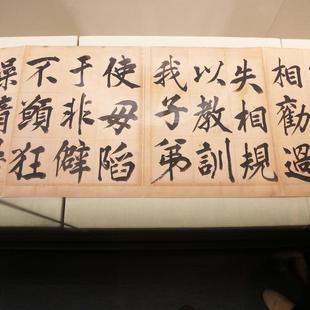 相勸過
失相規
以教訓
我子弟
使毋陷
于非僻
不狂